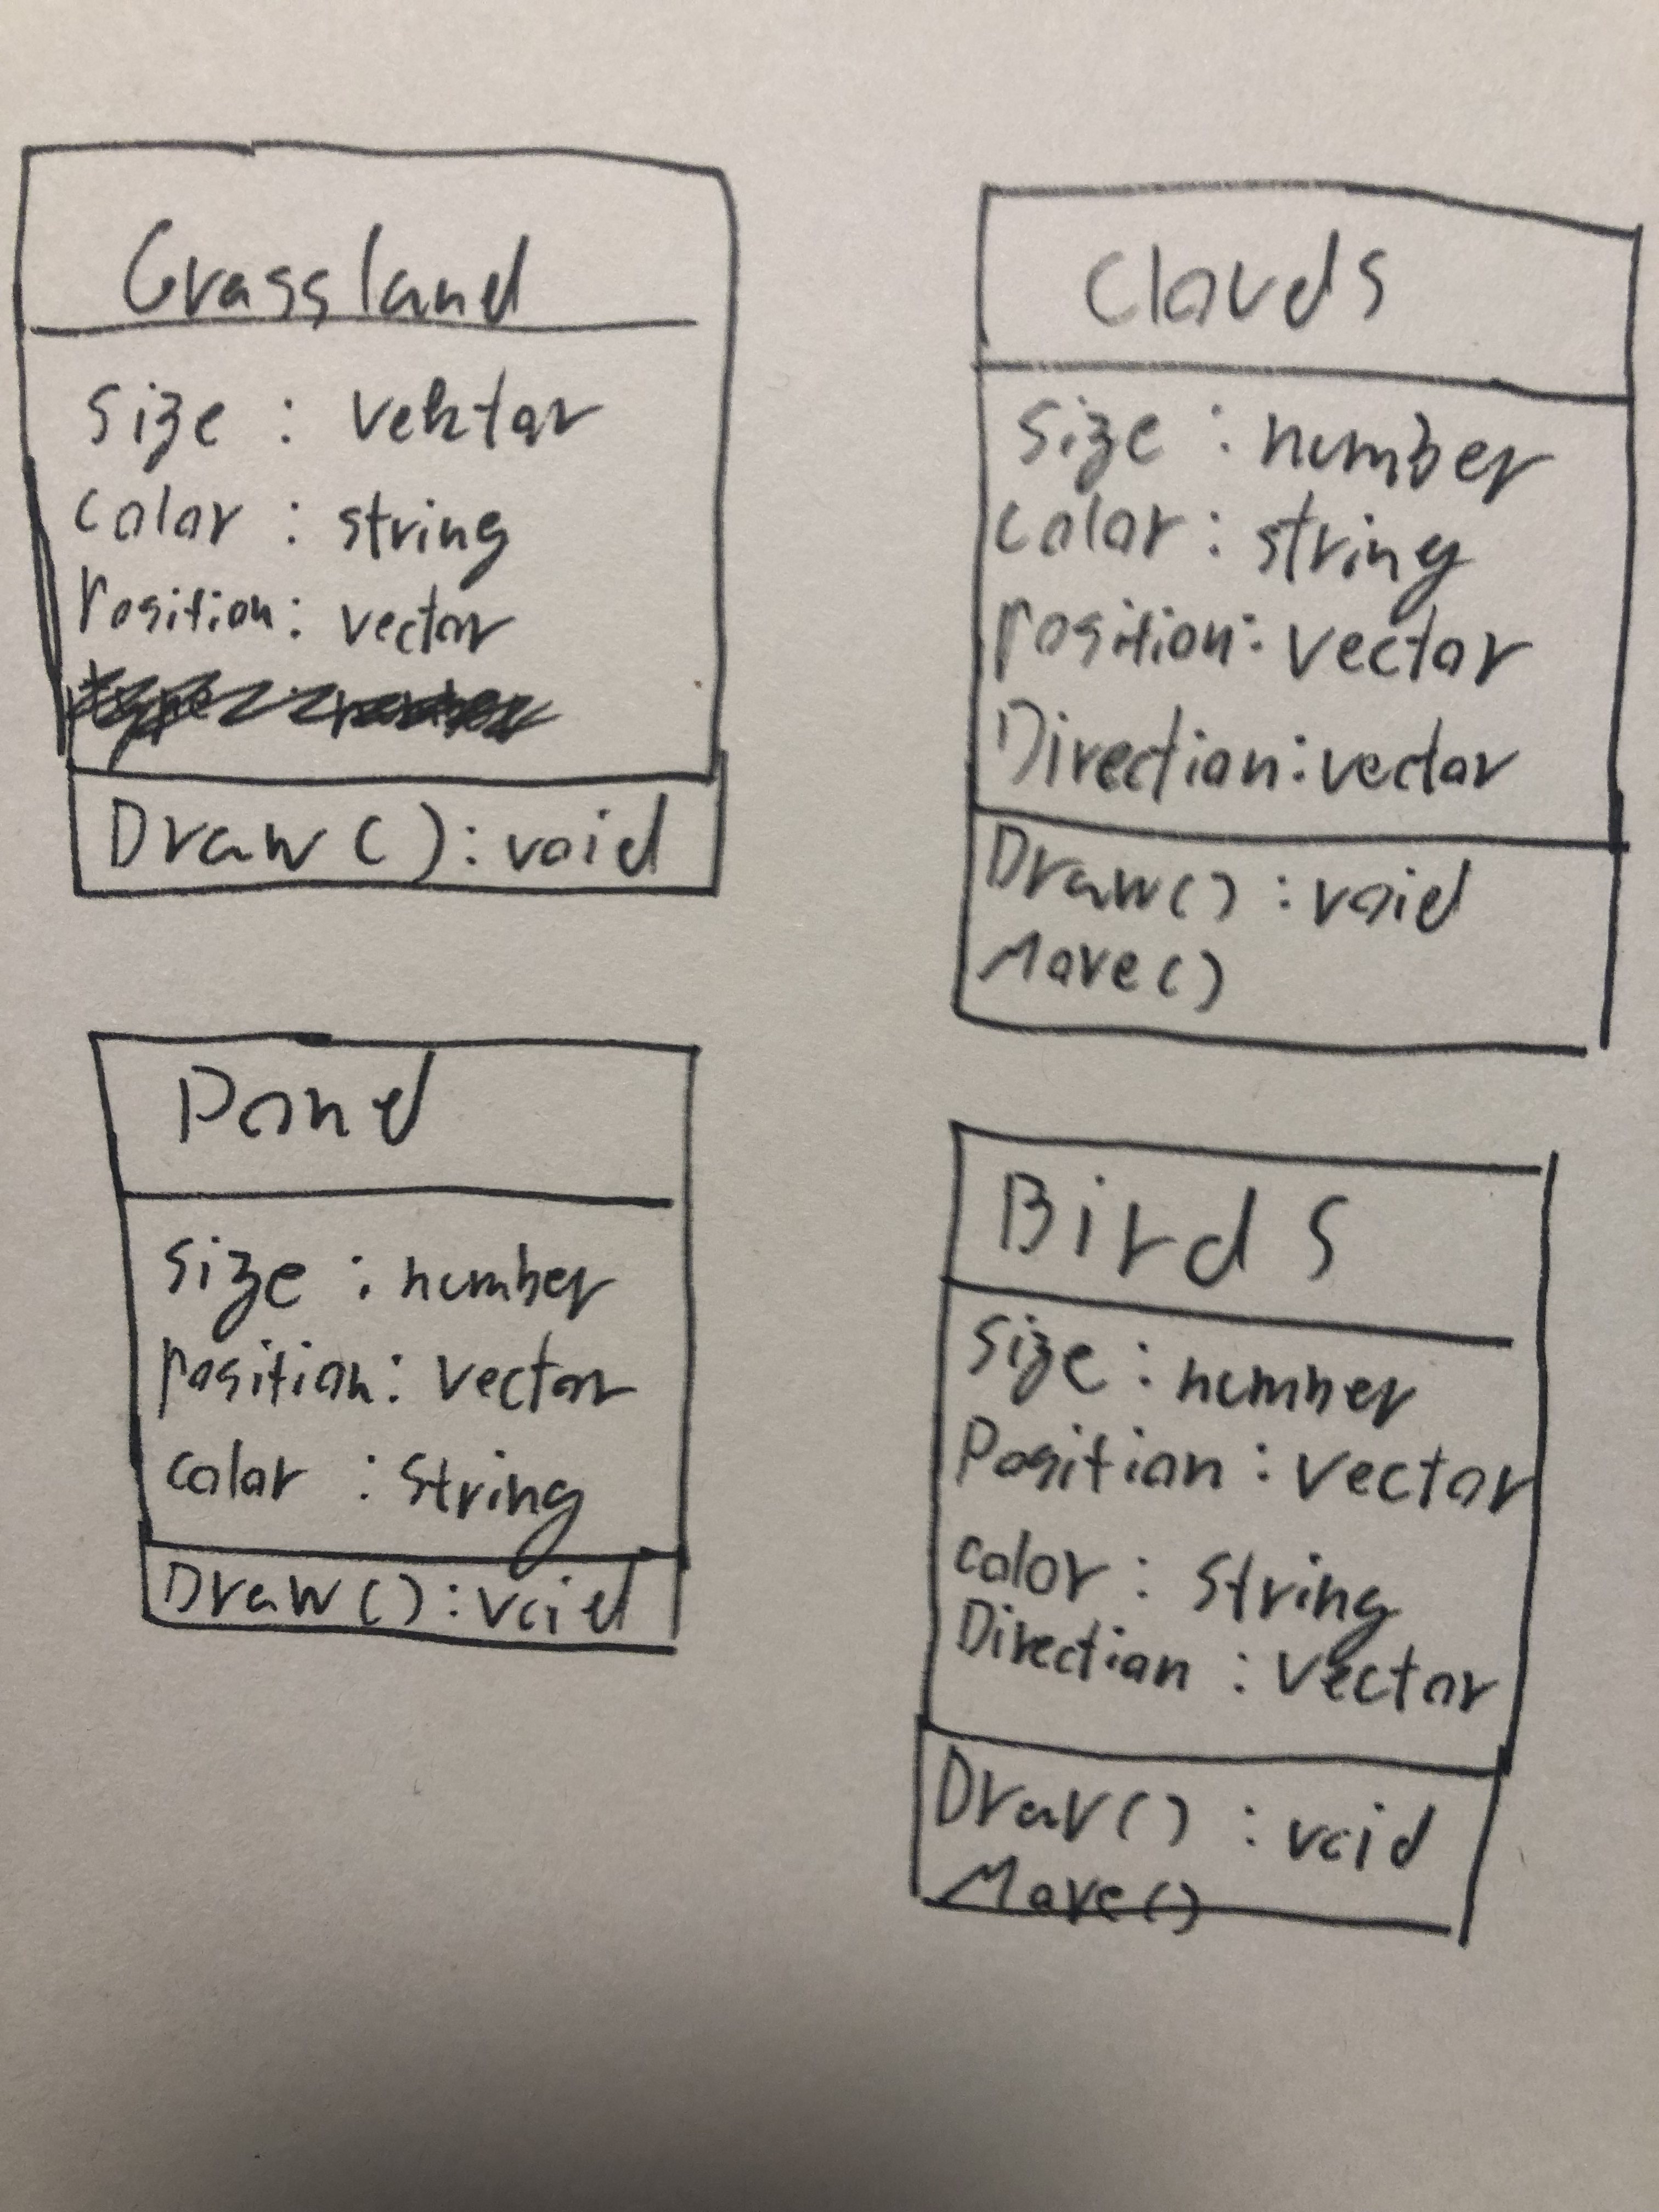 Grassland
size : vektor
color : string
Position: vector
Draw():void
Clouds
size : number
color : string
position: vector
Direction: vector
Draw() : void
Move()
Pond
size : number
position: vector
color : string
Draw():void
Birds
size : number
Position : vector
color : string
Direction : vector
Draw() : void
Move()